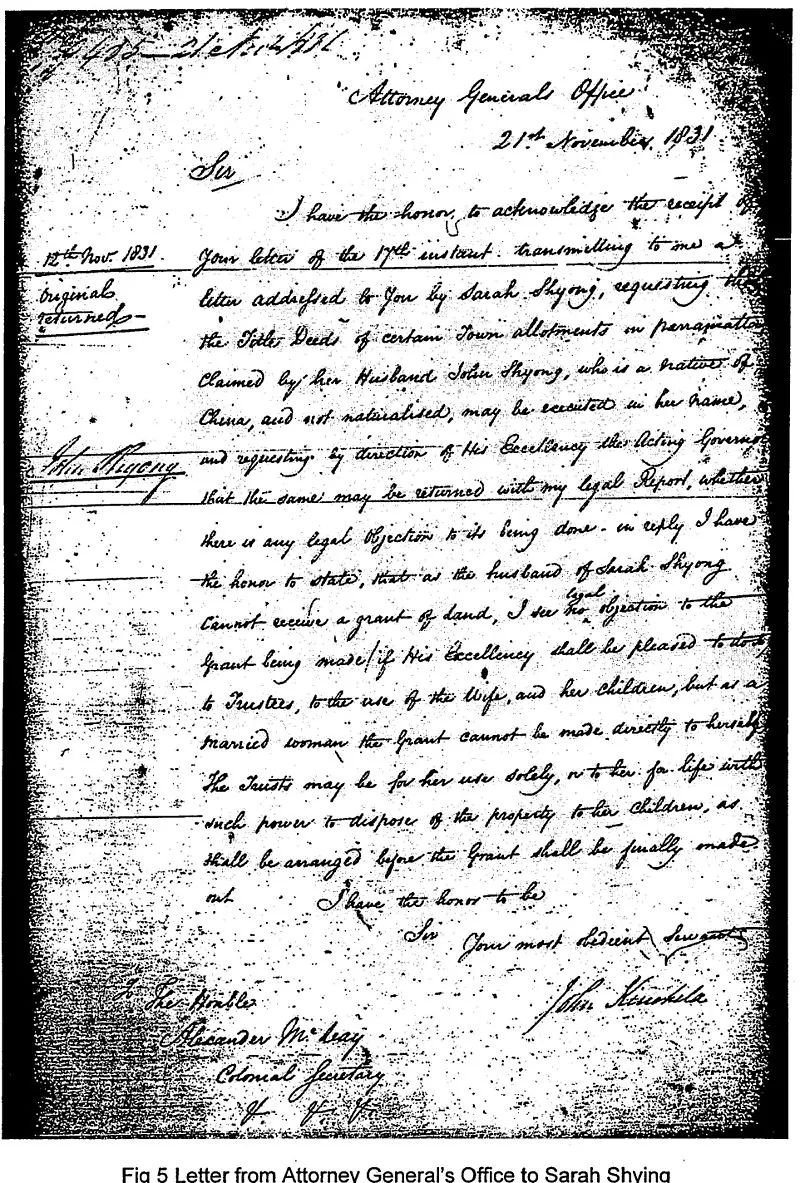 Attorney Generals Office
21st November 1831
Sir
I have the honor to acknowledge the receipt of
12th Nov. 1831.
Your letter of the 17th instant transmitting to me a
Original
letter addressed to You by Sarah Shyong, requesting that
returned
the Title Deeds of certain Town allotments in parramatta
claimed by her Husband John Shyong, who is a native of
China, and not naturalised, may be executed in her name,
John Shyong
and requesting by direction of His Excellency the Acting Governor
that the same may be returned with my legal Report, whether
there is any legal Objection to its being done - in reply I have
the honor to state, that as the husband of Sarah Shyong
cannot receive a grant of land, I see no legal objection to the
Grant being made (if His Excellency shall be pleased to do so)
to Trustees, to the use of the Wife, and her children, but as a
married woman the Grant cannot be made directly to herself
The Trusts may be for her use solely, or to her for life with
such power to dispose of the property to her children, as
shall be arranged before the Grant shall be finally made
out I have the honor to be
Sir Your most obedient Servant
John Kinchela
The Honble
Alexander McLeay
Colonial Secretary
Fig 5 Letter from Attorney General's Office to Sarah Shying